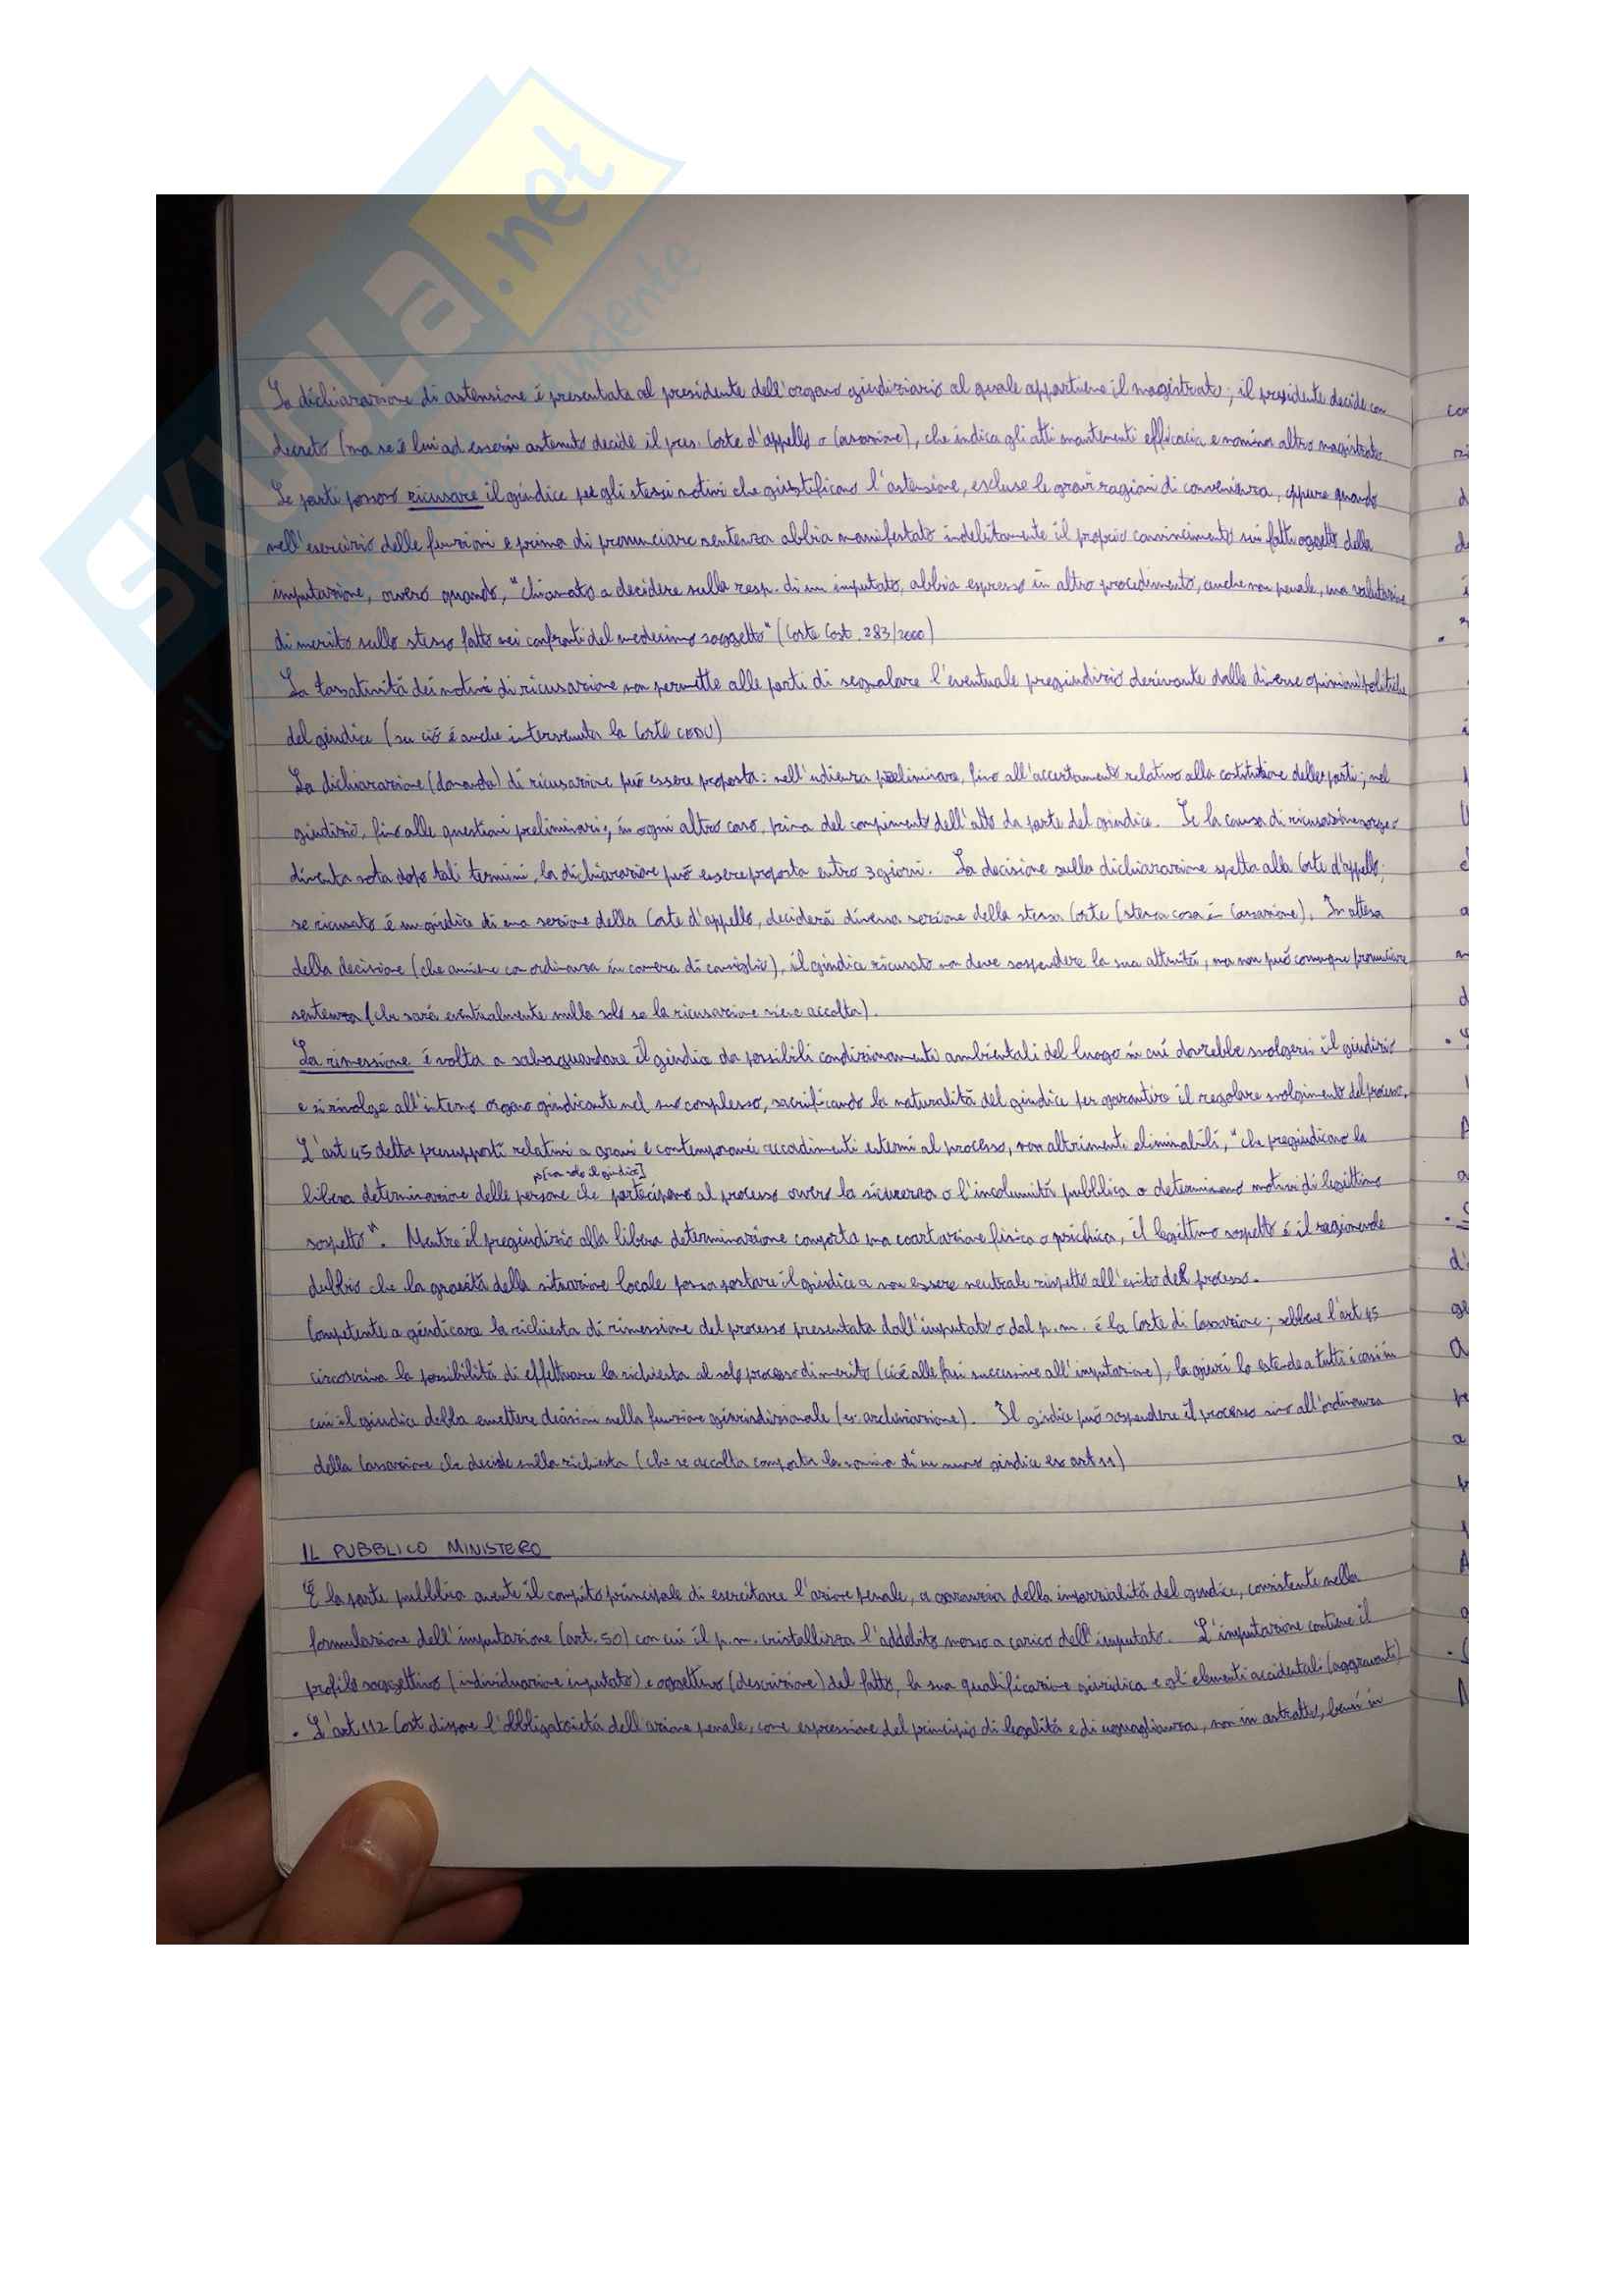 SKUOLA.net
La dichiarazione di astensione é presentata al presidente dell'organo giudiziario al quale appartiene il magistrato; il presidente decide con
decreto (ma se é lui ad essersi astenuto decide il pres. Corte d'appello o Cassazione), che indica gli atti mantenenti efficacia e nomina altro magistrato.
Le parti possono ricusare il giudice per gli stessi motivi che giustificano l'astensione, escluse le gravi ragioni di convenienza, oppure quando
nell'esercizio delle funzioni e prima di pronunciare sentenza abbia manifestato indebitamente il proprio convincimento sui fatti oggetto della
imputazione, ovvero quando, "chiamato a decidere sulla resp. di un imputato, abbia espresso in altro procedimento, anche non penale, una valutazione
di merito sullo stesso fatto nei confronti del medesimo soggetto" (Corte Cost. 283/2000)
La tassatività dei motivi di ricusazione non permette alle parti di segnalare l'eventuale pregiudizio derivante dalle diverse opinioni politiche
del giudice (su ció é anche intervenuta la Corte CEDU)
La dichiarazione (domanda) di ricusazione puó essere proposta: nell'udienza preliminare, fino all'accertamento relativo alla costituzione delle parti; nel
giudizio, fino alle questioni preliminari; in ogni altro caso, prima del compimento dell'atto da parte del giudice. Se la causa di ricusazione sorge o
diventa nota dopo tali termini, la dichiarazione puó essere proposta entro 3 giorni. La decisione sulla dichiarazione spetta alla Corte d'appello;
se ricusato é un giudice di una sezione della Corte d'appello, deciderá diversa sezione della stessa Corte (stessa cosa in Cassazione). In attesa
della decisione (che avviene con ordinanza in camera di consiglio), il giudice ricusato non deve sospendere la sua attivitá, ma non puó comunque pronunciare
sentenza (che sará eventualmente nulla solo se la ricusazione viene accolta).
La rimessione é volta a salvaguardare il giudice da possibili condizionamenti ambientali del luogo in cui dovrebbe svolgersi il giudizio
e si rivolge all'intero organo giudicante nel suo complesso, sacrificando la naturalitá del giudice per garantire il regolare svolgimento del processo.
L'art 45 detta presupposti relativi a gravi e contemporanei accadimenti esterni al processo, non altrimenti eliminabili, "che pregiudicano la
[non solo il giudice]
libera determinazione delle persone che partecipano al processo ovvero la sicurezza o l'incolumitá pubblica o determinano motivi di legittimo
sospetto". Mentre il pregiudizio alla libera determinazione comporta una coartazione fisica o psichica, il legittimo sospetto é il ragionevole
dubbio che la gravitá della situazione locale possa portare il giudice a non essere neutrale rispetto all'esito del processo.
Competente a giudicare la richiesta di rimessione del processo presentata dall'imputato o dal p.m. é la Corte di Cassazione; sebbene l'art 45
circoscriva la possibilitá di effettuare la richiesta al solo processo di merito (cioé alle fasi successive all'imputazione), la giuri lo estende a tutti i casi in
cui il giudice debba emettere decisioni nella funzione giurisdizionale (es archiviazione). Il giudice puó sospendere il processo sino all'ordinanza
della Cassazione che decide sulla richiesta (che se accolta comporta la nomina di un nuovo giudice ex art 11)
IL PUBBLICO MINISTERO
É la parte pubblica avente il compito principale di esercitare l'azione penale, a garanzia della imparzialitá del giudice, consistente nella
formulazione dell'imputazione (art. 50) con cui il p.m. cristallizza l'addebito mosso a carico dell'imputato. L'imputazione contiene il
profilo soggettivo (individuazione imputato) e oggettivo (descrizione) del fatto, la sua qualificazione giuridica e gli elementi accidentali (aggravanti)
• L'art 112 Cost dispone l'obbligatorietá dell'azione penale, come espressione del principio di legalitá e di uguaglianza, non in astratto, bensí in